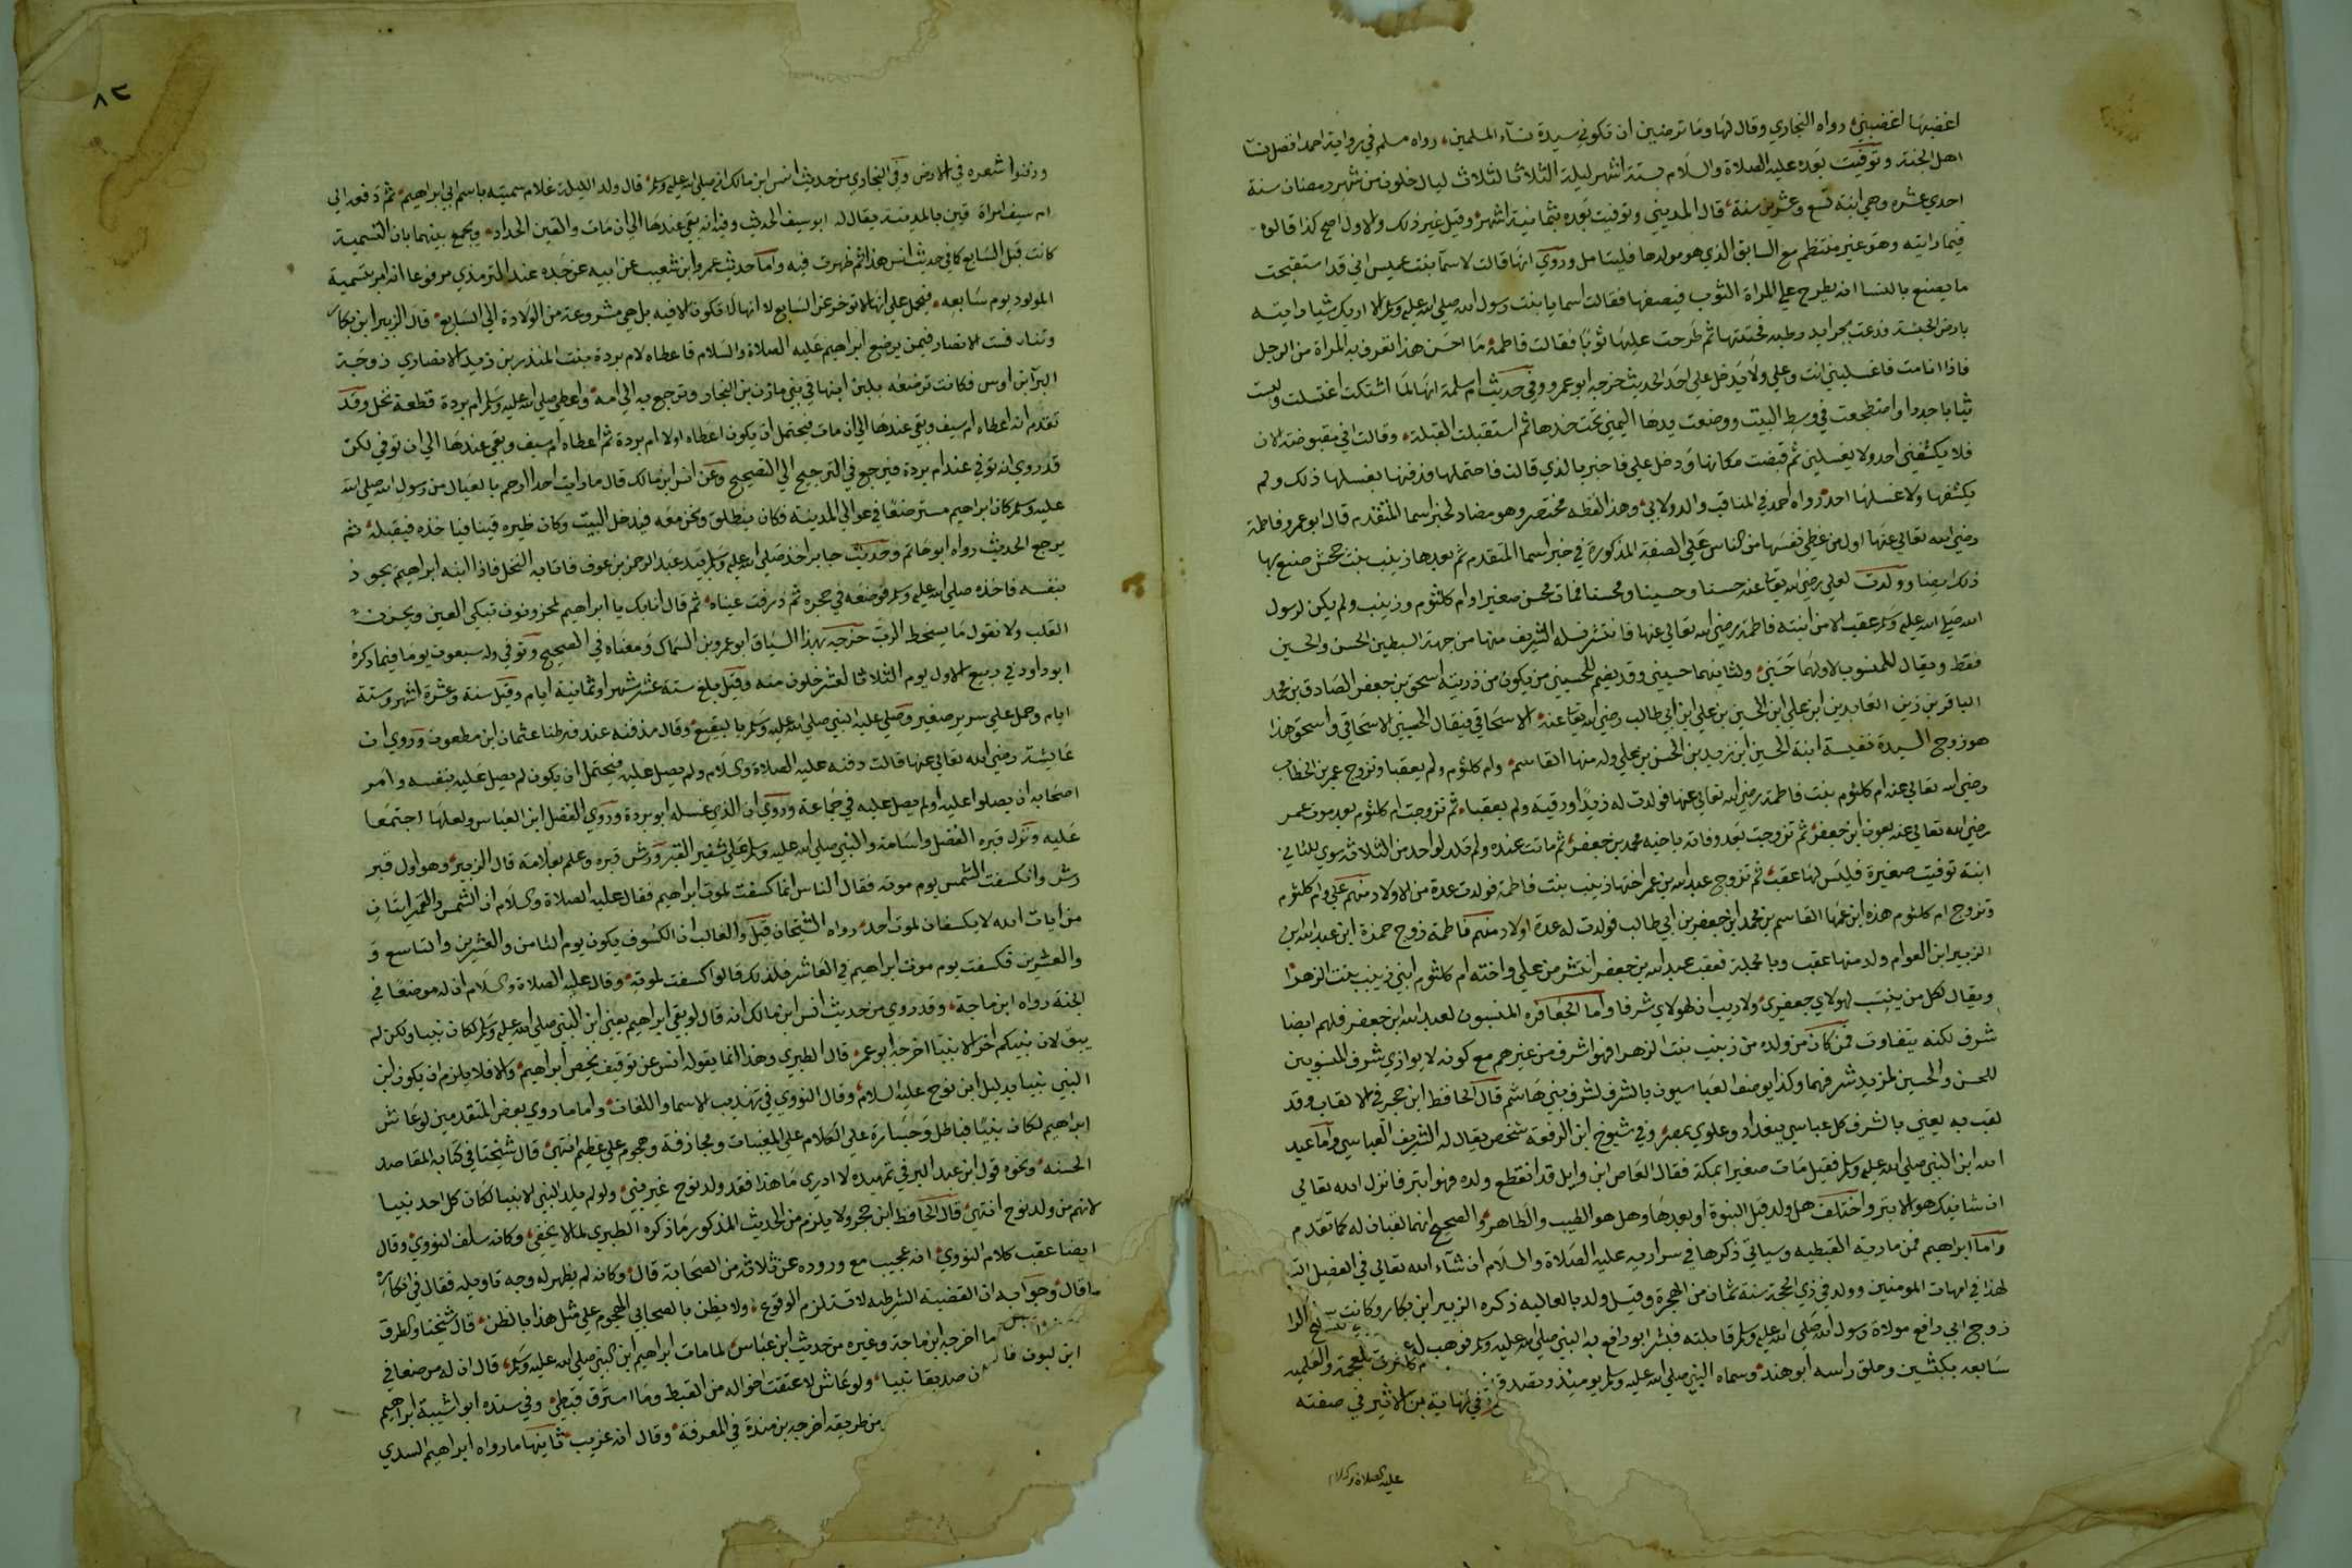 اغضبها اغضبني رواه البخاري وقال لها وما ترضين ان تكوني سيدة نساء المسلمين رواه مسلم في رواية احمد افضل نسا
اهل الجنة وتوفيت بعده عليه الصلاة والسلام بستة اشهر ليلة الثلاثا لثلاث ليال خلون من شهر رمضان سنة
احدي عشرة وهي ابنة تسع وعشرين سنة قال المديني وتوفيت بعده بثمانية اشهر وقيل غير ذلك والاول اصح كذا قالوه
فيما رايته وهو غير منتظم مع السابق الذي هو مولدها فليتامل وروي انها قالت لاسما بنت عميس اني قد استقبحت
ما يصنع بالنسا انه يطرح علي المراة الثوب فيصفها فقالت اسما يا بنت رسول الله صلي الله عليه وسلم الا اريك شيا رايته
بارض الحبشة فدعت بجرايد رطبه فحنتها ثم طرحت عليها ثوبا فقالت فاطمة ما احسن هذا تعرف به المراة من الرجل
فاذا انامت فاغسليني انت وعلي ولا يدخل علي احد الحديث خرجه ابو عمرو وفي حديث ام سلمة انها لما اشتكت اغتسلت ولبست
ثيابا جددا واضطجعت في وسط البيت ووضعت يدها اليمني تحت خدها ثم استقبلت القبلة وقالت اني مقبوضة الان
فلا يكشفني احد ولا يغسلني ثم قبضت مكانها ودخل علي فاخبر بالذي قالت فاحتملها فدفنها بغسلها ذلك ولم
يكشفها ولا غسلها احد رواه احمد في المناقب والدولابي وهذا لفظه مختصر وهو مضاد لخبر اسما المتقدم قال ابو عمرو فاطمة
رضي الله تعالي عنها اول من غطي نعشها من الناس علي الصفة المذكورة في خبر اسما المتقدم ثم بعدها زينب بنت جحش صنع بها
ذلك ايضا وولدت لعلي رضي الله تعالي عنه حسنا وحسينا ومحسنا فمات محسن صغيرا وام كلثوم وزينب ولم يكن لرسول
الله صلي الله عليه وسلم عقب الا من ابنته فاطمة رضي الله تعالي عنها فانتشر نسله الشريف منها من جهة السبطين الحسن والحسين
فقط ويقال للمنسوب لاولهما حسني ولثانيهما حسيني وقد يضم للحسيني من يكون من ذرية اسحق بن جعفر الصادق بن محمد
الباقر بن زين العابدين ابن علي ابن الحسين بن علي ابن ابي طالب رضي الله تعالي عنه الاسحاقي فيقال الحسيني الاسحاقي واسحق هذا
هو زوج السيدة نفيسة ابنة الحسين ابن زيد بن الحسن بن علي وله منها القاسم وام كلثوم ولم يعقبا وتزوج عمر بن الخطاب
رضي الله تعالي عنه ام كلثوم بنت فاطمة رضي الله تعالي عنها فولدت له زيدا ورقية ولم يعقبا ثم تزوجت ام كلثوم بعد موت عمر
رضي الله تعالي عنه بعون ابن جعفر ثم تزوجت بعد وفاته باخيه محمد بن جعفر ثم ماتت عنده ولم تلد لواحد من الثلاثة سوي للثاني
ابنة توفيت صغيرة فليس لها عقب ثم تزوج عبد الله بن عمر اختها زينب بنت فاطمة فولدت عدة من الاولاد منهم علي وام كلثوم
وتزوج ام كلثوم هذه ابن عمها القاسم بن محمد ابن جعفر بن ابي طالب فولدت له عدة اولاد منهم فاطمة زوج حمزة ابن عبد الله ابن
الزبير ابن العوام ولد منها عقب وبالجملة فعقب عبد الله بن جعفر انتشر من علي واخته ام كلثوم ابني زينب بنت الزهرا
ويقال لكل من ينسب لهولاي جعفري ولا ريب ان لهولاي شرفا واما الجعافرة المنسبون لعبد الله ابن جعفر فلهم ايضا
شرف لكنه يتفاوت فمن كان من ولده من زينب بنت الزهرا فهو اشرف من غيرهم مع كونه لا يوازي شرف المنسوبين
للحسن والحسين لمزيد شرفهما وكذا يوصف العباسيون بالشرف لشرف بني هاشم قال الحافظ ابن حجر في الالقاب وقد
لقب به يعني بالشرف كل عباسي ببغداد وعلوي بمصر وفي شيوخ ابن الرفعة شخص يقال له الشريف العباسي واما عبد
الله ابن النبي صلي الله عليه وسلم فقيل مات صغيرا بمكة فقال العاص ابن وايل قد انقطع ولده فهو ابتر فانزل الله تعالي
ان شانيك هو الابتر واختلف هل ولد قبل النبوة او بعدها وهل هو الطيب والطاهر والصحيح انهما لقبان له كما تقدم
واما ابراهيم فمن مارية القبطيه وسياتي ذكرها في سراريه عليه الصلاة والسلام ان شاء الله تعالي في الفصل التـ
لهذا في امهات المومنين وولد في ذي الحجة سنة ثمان من الهجرة وقيل ولد بالعالية ذكره الزبير ابن بكار وكانت
زوج ابي رافع مولاة رسول الله صلي الله عليه وسلم قابلته فبشر ابو رافع به النبي صلي الله عليه وسلم فوهب له
سابعه بكبشين وحلق راسه ابو هند وسماه النبي صلي الله عليه وسلم يومئذ وتصدق
في نهاية بن الاثير في صفته
عليه الصلاة والسلام
٨٢
ودفنوا شعره في الارض وفي البخاري من حديث انس ابن مالك انه صلي الله عليه وسلم قال ولد الليلة غلام سميته باسم ابي ابراهيم ثم دفعه الي
ام سيف امراة قين بالمدينة يقال له ابو سيف الحديث وفيه انه بقي عندها الي ان مات والقين الحداد ويجمع بينهما بان التسمية
كانت قبل السابع كما في حديث انس هذا ثم ظهرت فيه واما حديث عمرو ابن شعيب عن ابيه عن جده عند الترمذي مرفوعا انه امر بتسمية
المولود يوم سابعه فيحمل علي انها لا توخر عن السابع لا انها لا تكون الا فيه بل هي مشروعة من الولادة الي السابع قال الزبير ابن بكار
وتنافست الانصار فيمن يرضع ابراهيم عليه الصلاة والسلام فاعطاه لام بردة بنت المنذر بن زيد الانصاري زوجة
البرا ابن اوس فكانت ترضعه بلبن ابنها في بني مازن بن النجار وترجع به الي امه واعطي صلي الله عليه وسلم ام بردة قطعة نخل وقد
تقدم انه اعطاه ام سيف وبقي عندها الي ان مات فيحتمل ان يكون اعطاه اولا ام بردة ثم اعطاه ام سيف وبقي عندها الي ان توفي لكن
قد روي انه توفي عند ام بردة فيرجع في الترجيح الي الصحيح وعن انس ابن مالك قال ما رايت احدا ارحم بالعيال من رسول الله صلي الله
عليه وسلم كان ابراهيم مسترضعا في عوالي المدينة فكان ينطلق ونحن معه فيدخل البيت وكان ظيره قينا فياخذه فيقبله ثم
يرجع الحديث رواه ابو حاتم وحديث جابر اخذ صلي الله عليه وسلم بيد عبد الرحمن بن عوف فاتا به النخل فاذا ابنه ابراهيم يجود
بنفسه فاخذه صلي الله عليه وسلم فوضعه في حجره ثم ذرفت عيناه ثم قال انا بك يا ابراهيم لمحزونون تبكي العين ويحزن
القلب ولا نقول ما يسخط الرب خرجه بهذا السياق ابو عمرو بن السماك ومعناه في الصحيح وتوفي وله سبعون يوما فيما ذكره
ابو داود في ربيع الاول يوم الثلاثا لعشر خلون منه وقيل بلغ ستة عشر شهرا وثمانية ايام وقيل سنة وعشرة اشهر وستة
ايام وحمل علي سرير صغير وصلي عليه النبي صلي الله عليه وسلم بالبقيع وقال ندفنه عند فرطنا عثمان ابن مظعون وروي ان
عايشة رضي الله تعالي عنها قالت دفنه عليه الصلاة والسلام ولم يصل عليه فيحتمل ان يكون لم يصل عليه بنفسه وامر
اصحابه ان يصلوا عليه او لم يصل عليه في جماعة وروي ان الذي غسله ابو بردة وروي الفضل ابن العباس ولعلها اجتمعا
عليه ونزل قبره الفضل واسامة والنبي صلي الله عليه وسلم علي شفير القبر ورش قبره وعلم بعلامة قال الزبير وهو اول قبر
رش وانكسفت الشمس يوم موته فقال الناس انما كسفت لموت ابراهيم فقال عليه الصلاة والسلام ان الشمس والقمر ايتان
من ايات الله لا يكسفان لموت احد رواه الشيخان قيل والغالب ان الكسوف يكون يوم الثامن والعشرين والتاسع و
والعشرين فكسفت يوم موت ابراهيم في العاشر فلذلك قالوا كسفت لموته وقال عليه الصلاة والسلام ان له مرضعا في
الجنة رواه ابن ماجة وقد روي من حديث انس ابن مالك انه قال لو بقي ابراهيم يعني ابن النبي صلي الله عليه وسلم لكان نبيا ولكن لم
يبق لان نبيكم اخر الانبيا اخرجه ابو عمر قال الطبري وهذا انما يقوله انس عن توقيف يخص ابراهيم والا فلا يلزم ان يكون ابن
النبي نبيا بدليل ابن نوح عليه السلام وقال النووي في تهذيب الاسما واللغات واما ما روي بعض المتقدمين لو عاش
ابراهيم لكان نبيا فباطل وجسارة علي الكلام علي المغيبات ومجازفة وهجوم علي عظيم انتهي قال شيخنا في كتابه المقاصد
الحسنه ونحوه قول ابن عبد البر في تمهيده لا ادري ما هذا فقد ولد نوح غير نبي ولو لم يلد النبي الا نبيا لكان كل احد نبيا
لانهم من ولد نوح انتهي قال الحافظ ابن حجر ولا يلزم من الحديث المذكور ما ذكره الطبري لما لا يخفي وكانه سلف النووي وقال
ايضا عقب كلام النووي انه عجيب مع وروده عن ثلاثة من الصحابة قال وكانه لم يظهر له وجه تاويله فقال في انكاره
ما قال وجوابه ان القضية الشرطيه لا تستلزم الوقوع ولا يظن بالصحابي الهجوم علي مثل هذا بالظن قال شيخنا والطرق
ما اخرجه ابن ماجة وغيره من حديث ابن عباس لما مات ابراهيم ابن النبي صلي الله عليه وسلم قال ان له مرضعا في
صديقا نبيا ولو عاش لاعتقت اخواله من القبط وما استرق قبطي وفي سنده ابو شيبة ابراهيم
من طريقه اخرجه بن مندة في المعرفة وقال انه غريب ثانيها ما رواه ابراهيم السدي